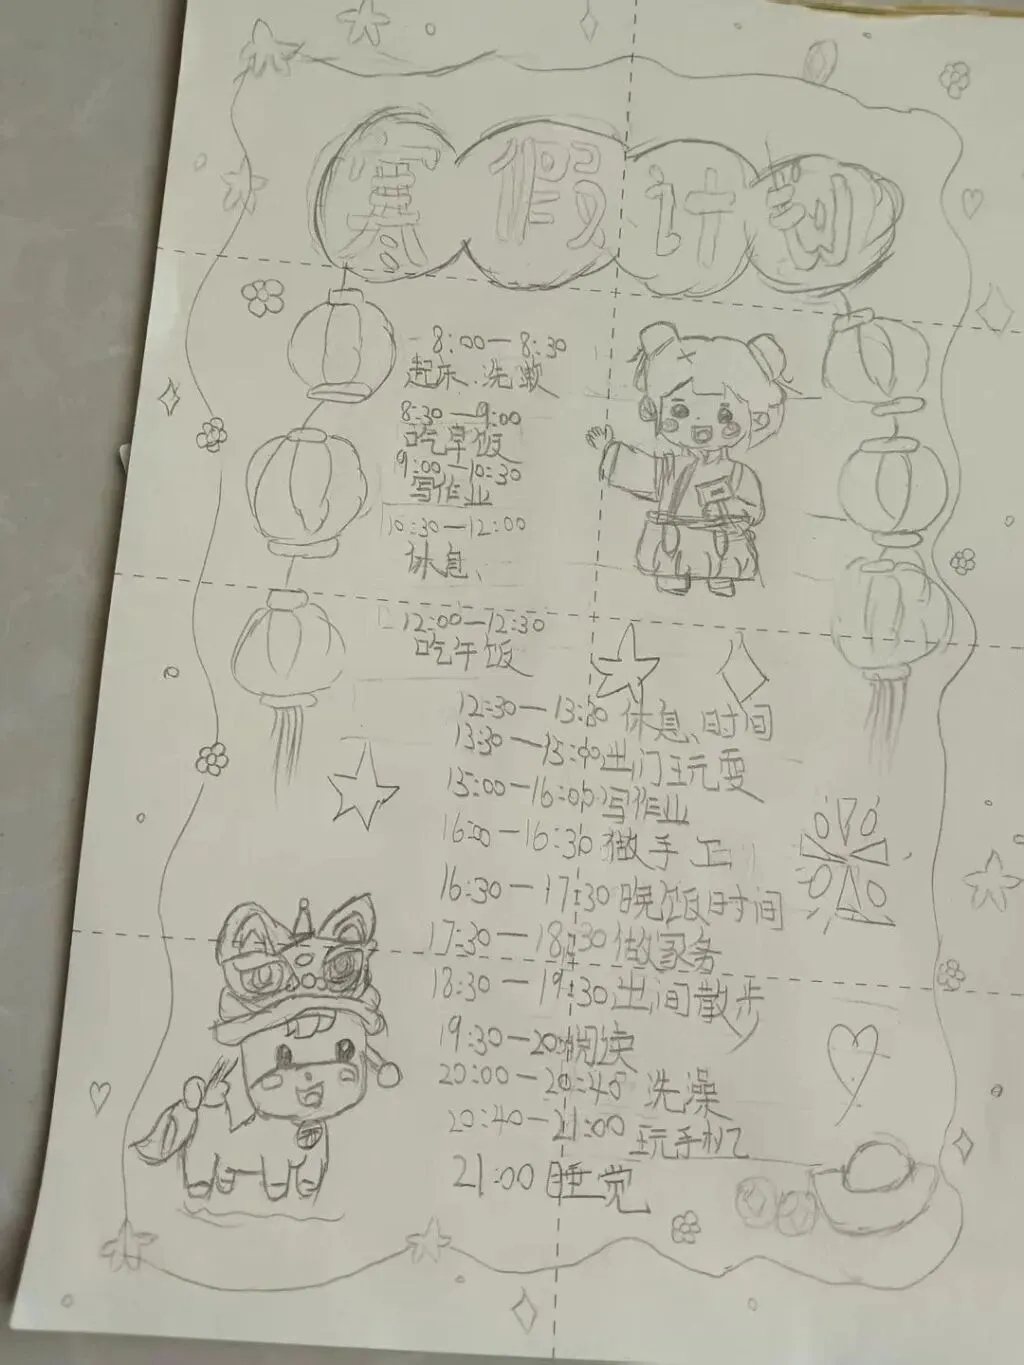 寒假计划
8:00—8:30
起床、洗漱
8:30—9:00
吃早饭
9:00—10:30
写作业
10:30—12:00
休息、
12:00—12:30
吃午饭
12:30—13:30 休息、时间
13:30—15:00 出门玩耍
15:00—16:00 写作业
16:00—16:30 做手工
16:30—17:30 晚饭时间
17:30—18:30 做家务
18:30—19:30 出间散步
19:30—20: 阅读
20:00—20:40 洗澡
20:40—21:00 玩手机
21:00 睡觉